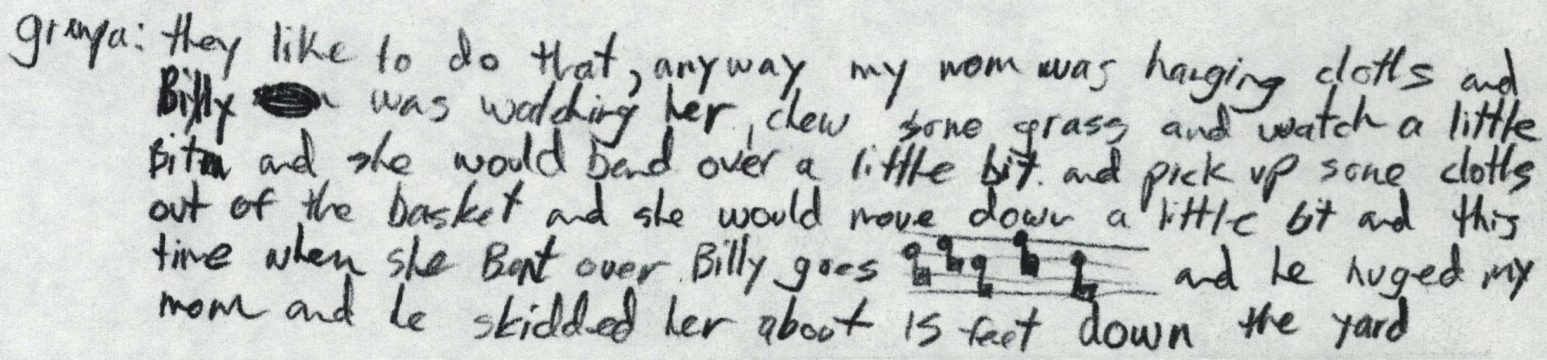 grampa: they like to do that, anyway my mom was hanging cloths and
Billy was watching her, chew some grass and watch a little
Bit and she would bend over a little bit and pick up some cloths
out of the basket and she would move down a little bit and this
time when she Bent over Billy goes and he huged my
mom and he skidded her about 15 feet down the yard